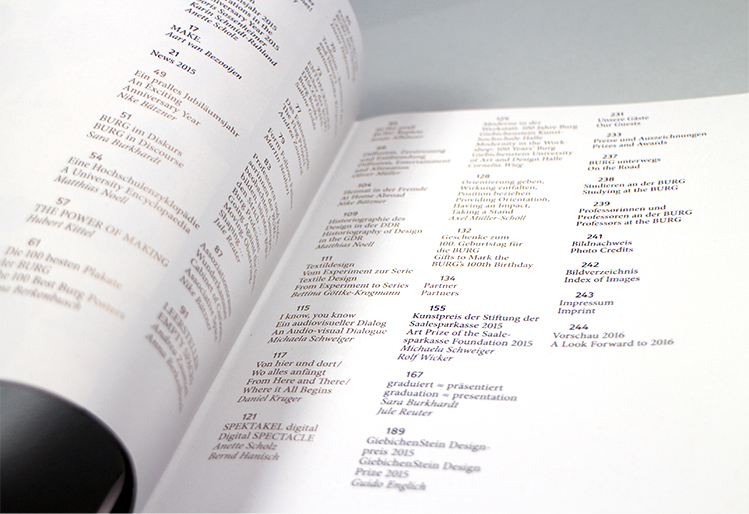 versary Year 2015
Anette Scholz
17
MAKE.
Aart van Bezooijen
21
News 2015
49
Ein pralles Jubiläumsjahr
An Exciting
Anniversary Year
Nike Bätzner
51
BURG im Diskurs
BURG in Discourse
Sara Burkhardt
54
Eine Hochschulenzyklopädie
A University Encyclopaedia
Matthias Noell
57
THE POWER OF MAKING
Hubert Kittel
61
Die 100 besten Plakate
der BURG
The 100 Best Burg Posters
83
91
104
Heimat in der Fremde
At Home Abroad
Nike Bätzner
109
Historiographie des
Design in der DDR
Historiography of Design
in the GDR
Matthias Noell
111
Textildesign
Vom Experiment zur Serie
Textile Design
From Experiment to Series
Bettina Göttke-Krogmann
115
I know, you know
Ein audiovisueller Dialog
An Audio-visual Dialogue
Michaela Schweiger
117
Von hier und dort/
Wo alles anfängt
From Here and There/
Where it All Begins
Daniel Kruger
121
SPEKTAKEL digital
Digital SPECTACLE
Anette Scholz
Bernd Hanisch
125
Moderne in der
Werkstatt. 100 Jahre Burg
Giebichenstein Kunst-
hochschule Halle
Modernity in the Work-
shop: 100 Years' Burg
Giebichenstein University
of Art and Design Halle
Cornelia Wieg
128
Orientierung geben,
Wirkung entfalten,
Position beziehen
Providing Orientation,
Having an Impact,
Taking a Stand
Axel Müller-Schöll
132
Geschenke zum
100. Geburtstag für
die BURG
Gifts to Mark the
BURG's 100th Birthday
134
Partner
Partners
155
Kunstpreis der Stiftung der
Saalesparkasse 2015
Art Prize of the Saale-
sparkasse Foundation 2015
Michaela Schweiger
Rolf Wicker
167
graduiert = präsentiert
graduation = presentation
Sara Burkhardt
Jule Reuter
189
GiebichenStein Design-
preis 2015
GiebichenStein Design
Prize 2015
Guido Englich
231
Unsere Gäste
Our Guests
233
Preise und Auszeichnungen
Prizes and Awards
237
BURG unterwegs
On the Road
238
Studieren an der BURG
Studying at the BURG
239
Professorinnen und
Professoren an der BURG
Professors at the BURG
241
Bildnachweis
Photo Credits
242
Bildverzeichnis
Index of Images
243
Impressum
Imprint
244
Vorschau 2016
A Look Forward to 2016